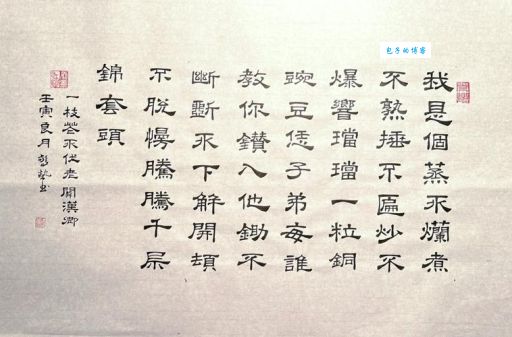 包子的博客
我是個蒸不爛煮
不熟捶不匾炒不
爆響璫璫一粒銅
豌豆恁子弟每誰
教你鑽入他鋤不
斷斲不下解開頓
不脫慢騰騰千层
錦套頭
一枝花不伏老關漢卿
壬寅良月书